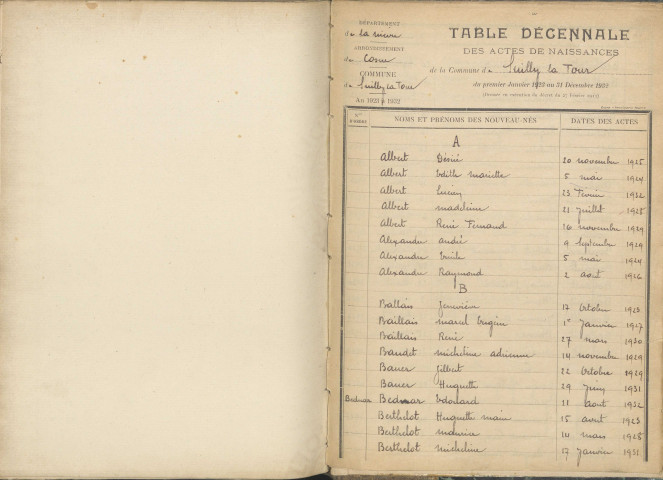 DÉPARTEMENT
de la Nièvre
ARRONDISSEMENT
de Cosne
COMMUNE
de Suilly la Tour
An 1923 à 1932
TABLE DÉCENNALE
DES ACTES DE NAISSANCES
de la Commune de Suilly la Tour
du premier Janvier 1923 au 31 Décembre 1932
NOMS ET PRÉNOMS DES NOUVEAU-NÉS
DATES DES ACTES
A
Albert Désiré 20 novembre 1925
Albert Edith mariette 5 mai 1924
Albert Lucien 23 Février 1932
Albert madeleine 21 Juillet 1928
Albert René Fernand 26 novembre 1929
Alexandre andré 9 Septembre 1929
Alexandre Emile 5 mai 1924
Alexandre Raymond 2 aout 1926
B
Ballais Geneviève 17 Octobre 1923
Baillais marcel Eugène 1er Janvier 1927
Baillais René 27 mars 1930
Baudet micheline adrienne 14 novembre 1929
Bauer Gilbert 22 Octobre 1929
Bauer Huguette 29 Juin 1931
Bedmar Bedmar Edouard 11 aout 1932
Berthelot Huguette 15 avril 1923
Berthelot maurice 10 mars 1928
Berthelot micheline 17 Janvier 1931